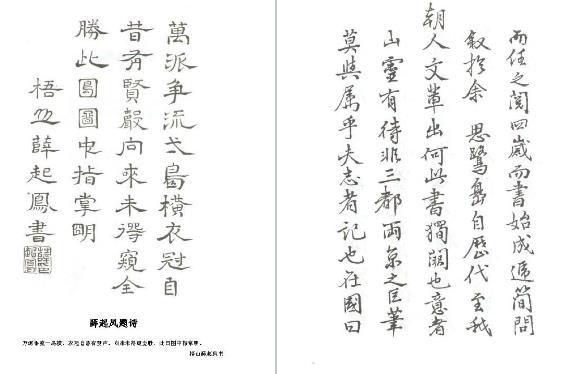 萬派争流弌島橫衣冠自
昔有賢聲向來未得窺全
勝此日圖中指掌明
梧山薛起鳳書
薛起凤题诗
万派争流一岛横，衣冠自昔有贤声。向来未得窥全胜，此日图中指掌明。
梧山薛起凤书
而任之閱四歲而書始成遞簡問
敘於余 思鷺島自歷代至我
朝人文輩出何此書獨闕也意者
山靈有待非三都兩京之巨筆
莫與属乎夫志者記也在國曰